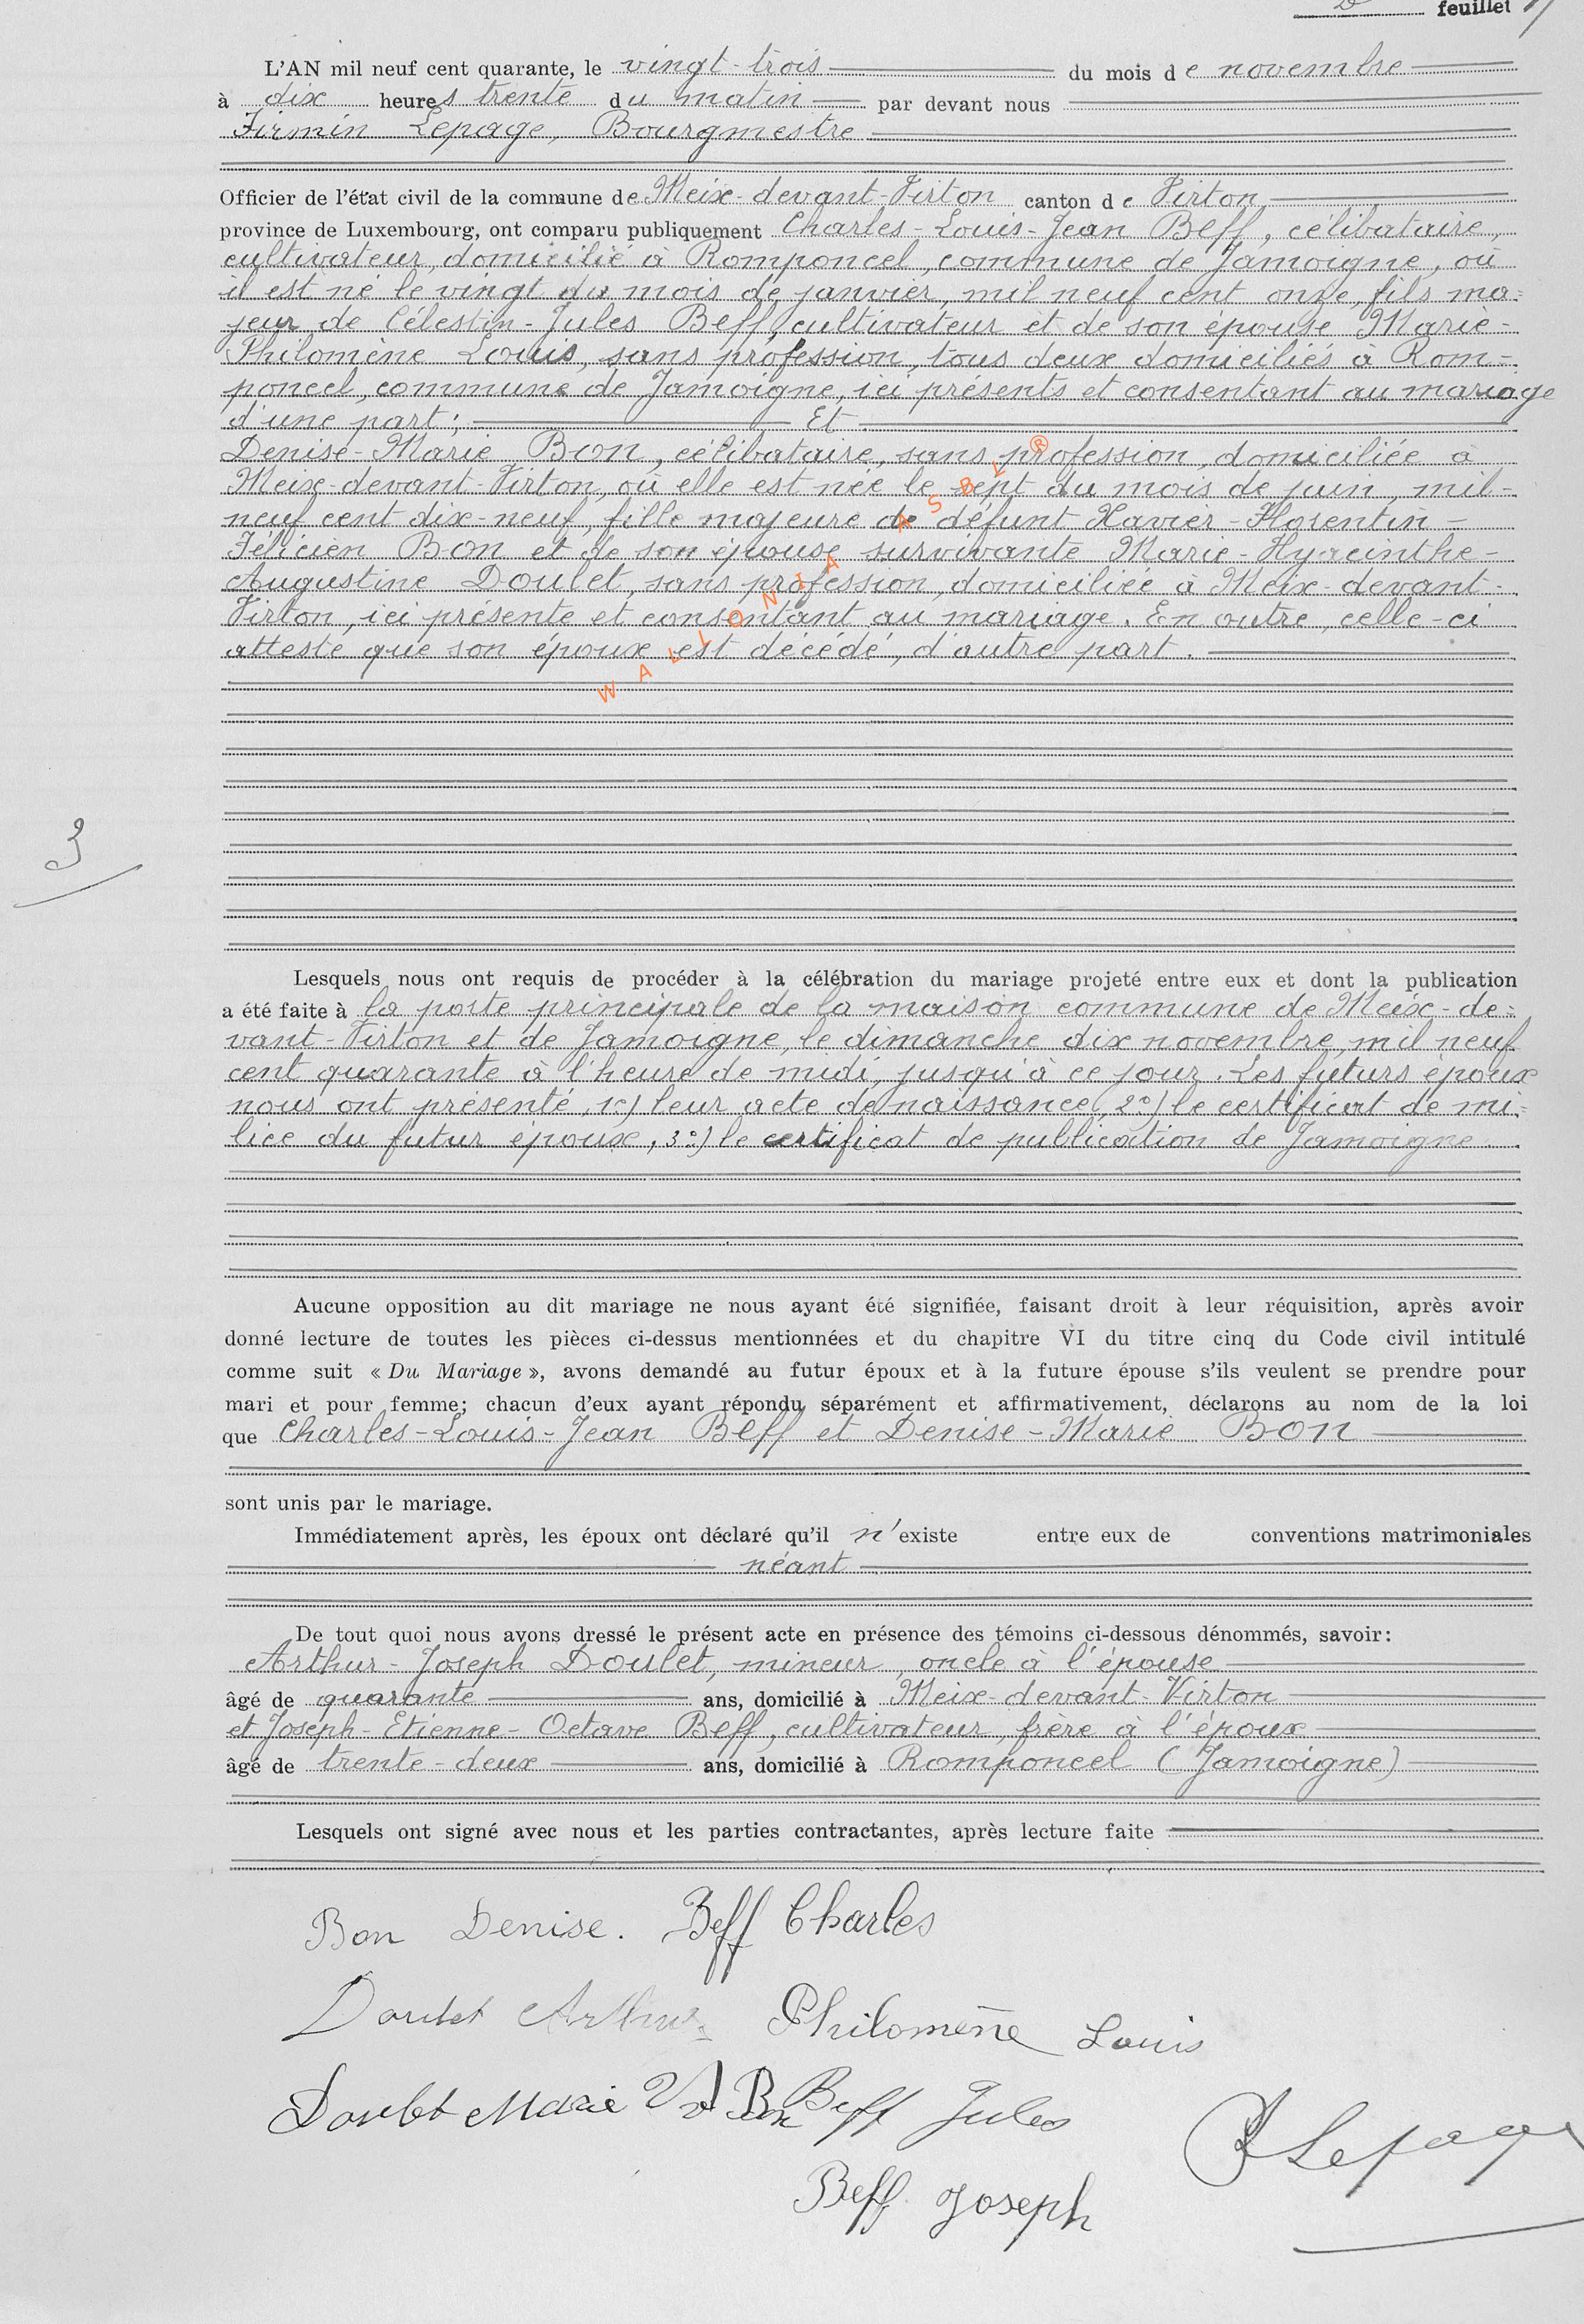 feuillet
L'AN mil neuf cent quarante, le vingt-trois du mois de novembre
à dix heures trente du matin par devant nous
Firmin Lepage, Bourgmestre
Officier de l'état civil de la commune de Meix-devant-Virton canton de Virton
province de Luxembourg, ont comparu publiquement Charles-Louis-Jean Beff, célibataire,
cultivateur, domicilié à Romponcel, commune de Jamoigne, où
il est né le vingt du mois de janvier, mil neuf cent onze, fils ma=
jeur de Célestin-Jules Beff, cultivateur et de son épouse Marie-
Philomène Louis, sans profession, tous deux domiciliés à Rom=
poncel, commune de Jamoigne, ici présents et consentant au mariage
d'une part; Et
Denise-Marie Bon, célibataire, sans profession, domiciliée à
Meix-devant-Virton, où elle est née le sept du mois de juin, mil-
neuf cent dix-neuf, fille majeure de défunt Xavier-Florentin-
Félicien Bon et de son épouse survivante Marie-Hyacinthe-
Augustine Doulet, sans profession, domiciliée à Meix-devant-
Virton, ici présente et consentant au mariage. En outre, celle-ci
atteste que son époux est décédé, d'autre part.
WALLONIA ASBL ®
3
Lesquels nous ont requis de procéder à la célébration du mariage projeté entre eux et dont la publication
a été faite à la porte principale de la maison commune de Meix-de=
vant-Virton et de Jamoigne, le dimanche dix novembre, mil neuf
cent quarante à l'heure de midi, jusqu'à ce jour. Les futurs époux
nous ont présenté, 1º) leur acte de naissance, 2º) le certificat de mi=
lice du futur époux, 3º) le certificat de publication de Jamoigne.
Aucune opposition au dit mariage ne nous ayant été signifiée, faisant droit à leur réquisition, après avoir
donné lecture de toutes les pièces ci-dessus mentionnées et du chapitre VI du titre cinq du Code civil intitulé
comme suit « Du Mariage », avons demandé au futur époux et à la future épouse s'ils veulent se prendre pour
mari et pour femme; chacun d'eux ayant répondu séparément et affirmativement, déclarons au nom de la loi
que Charles-Louis-Jean Beff et Denise-Marie Bon
sont unis par le mariage.
Immédiatement après, les époux ont déclaré qu'il n'existe entre eux de conventions matrimoniales
néant
De tout quoi nous avons dressé le présent acte en présence des témoins ci-dessous dénommés, savoir:
Arthur-Joseph Doulet, mineur, oncle à l'épouse
âgé de quarante ans, domicilié à Meix-devant-Virton
et Joseph-Etienne-Octave Beff, cultivateur, frère à l'époux
âgé de trente-deux ans, domicilié à Romponcel (Jamoigne)
Lesquels ont signé avec nous et les parties contractantes, après lecture faite
Bon Denise. Beff Charles
Doulet Arthur Philomène Louis
Doulet Marie Vve Bon Beff Jules
Lepage
Beff Joseph